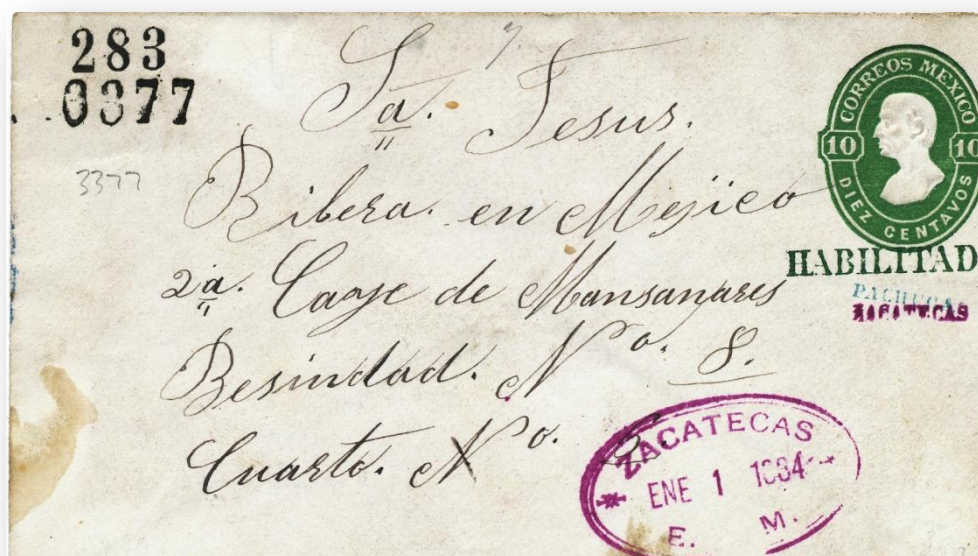 283
0377
3377
Sa. Jesus.
Ribera. en Mejico
2a. Caye de Mansanares
Besindad. No. 8.
Cuarto. No.
CORREOS MEXICO
10 10
DIEZ CENTAVOS
HABILITAD
PACHUCA
ZACATECAS
ZACATECAS
ENE 1 1884
E. M.